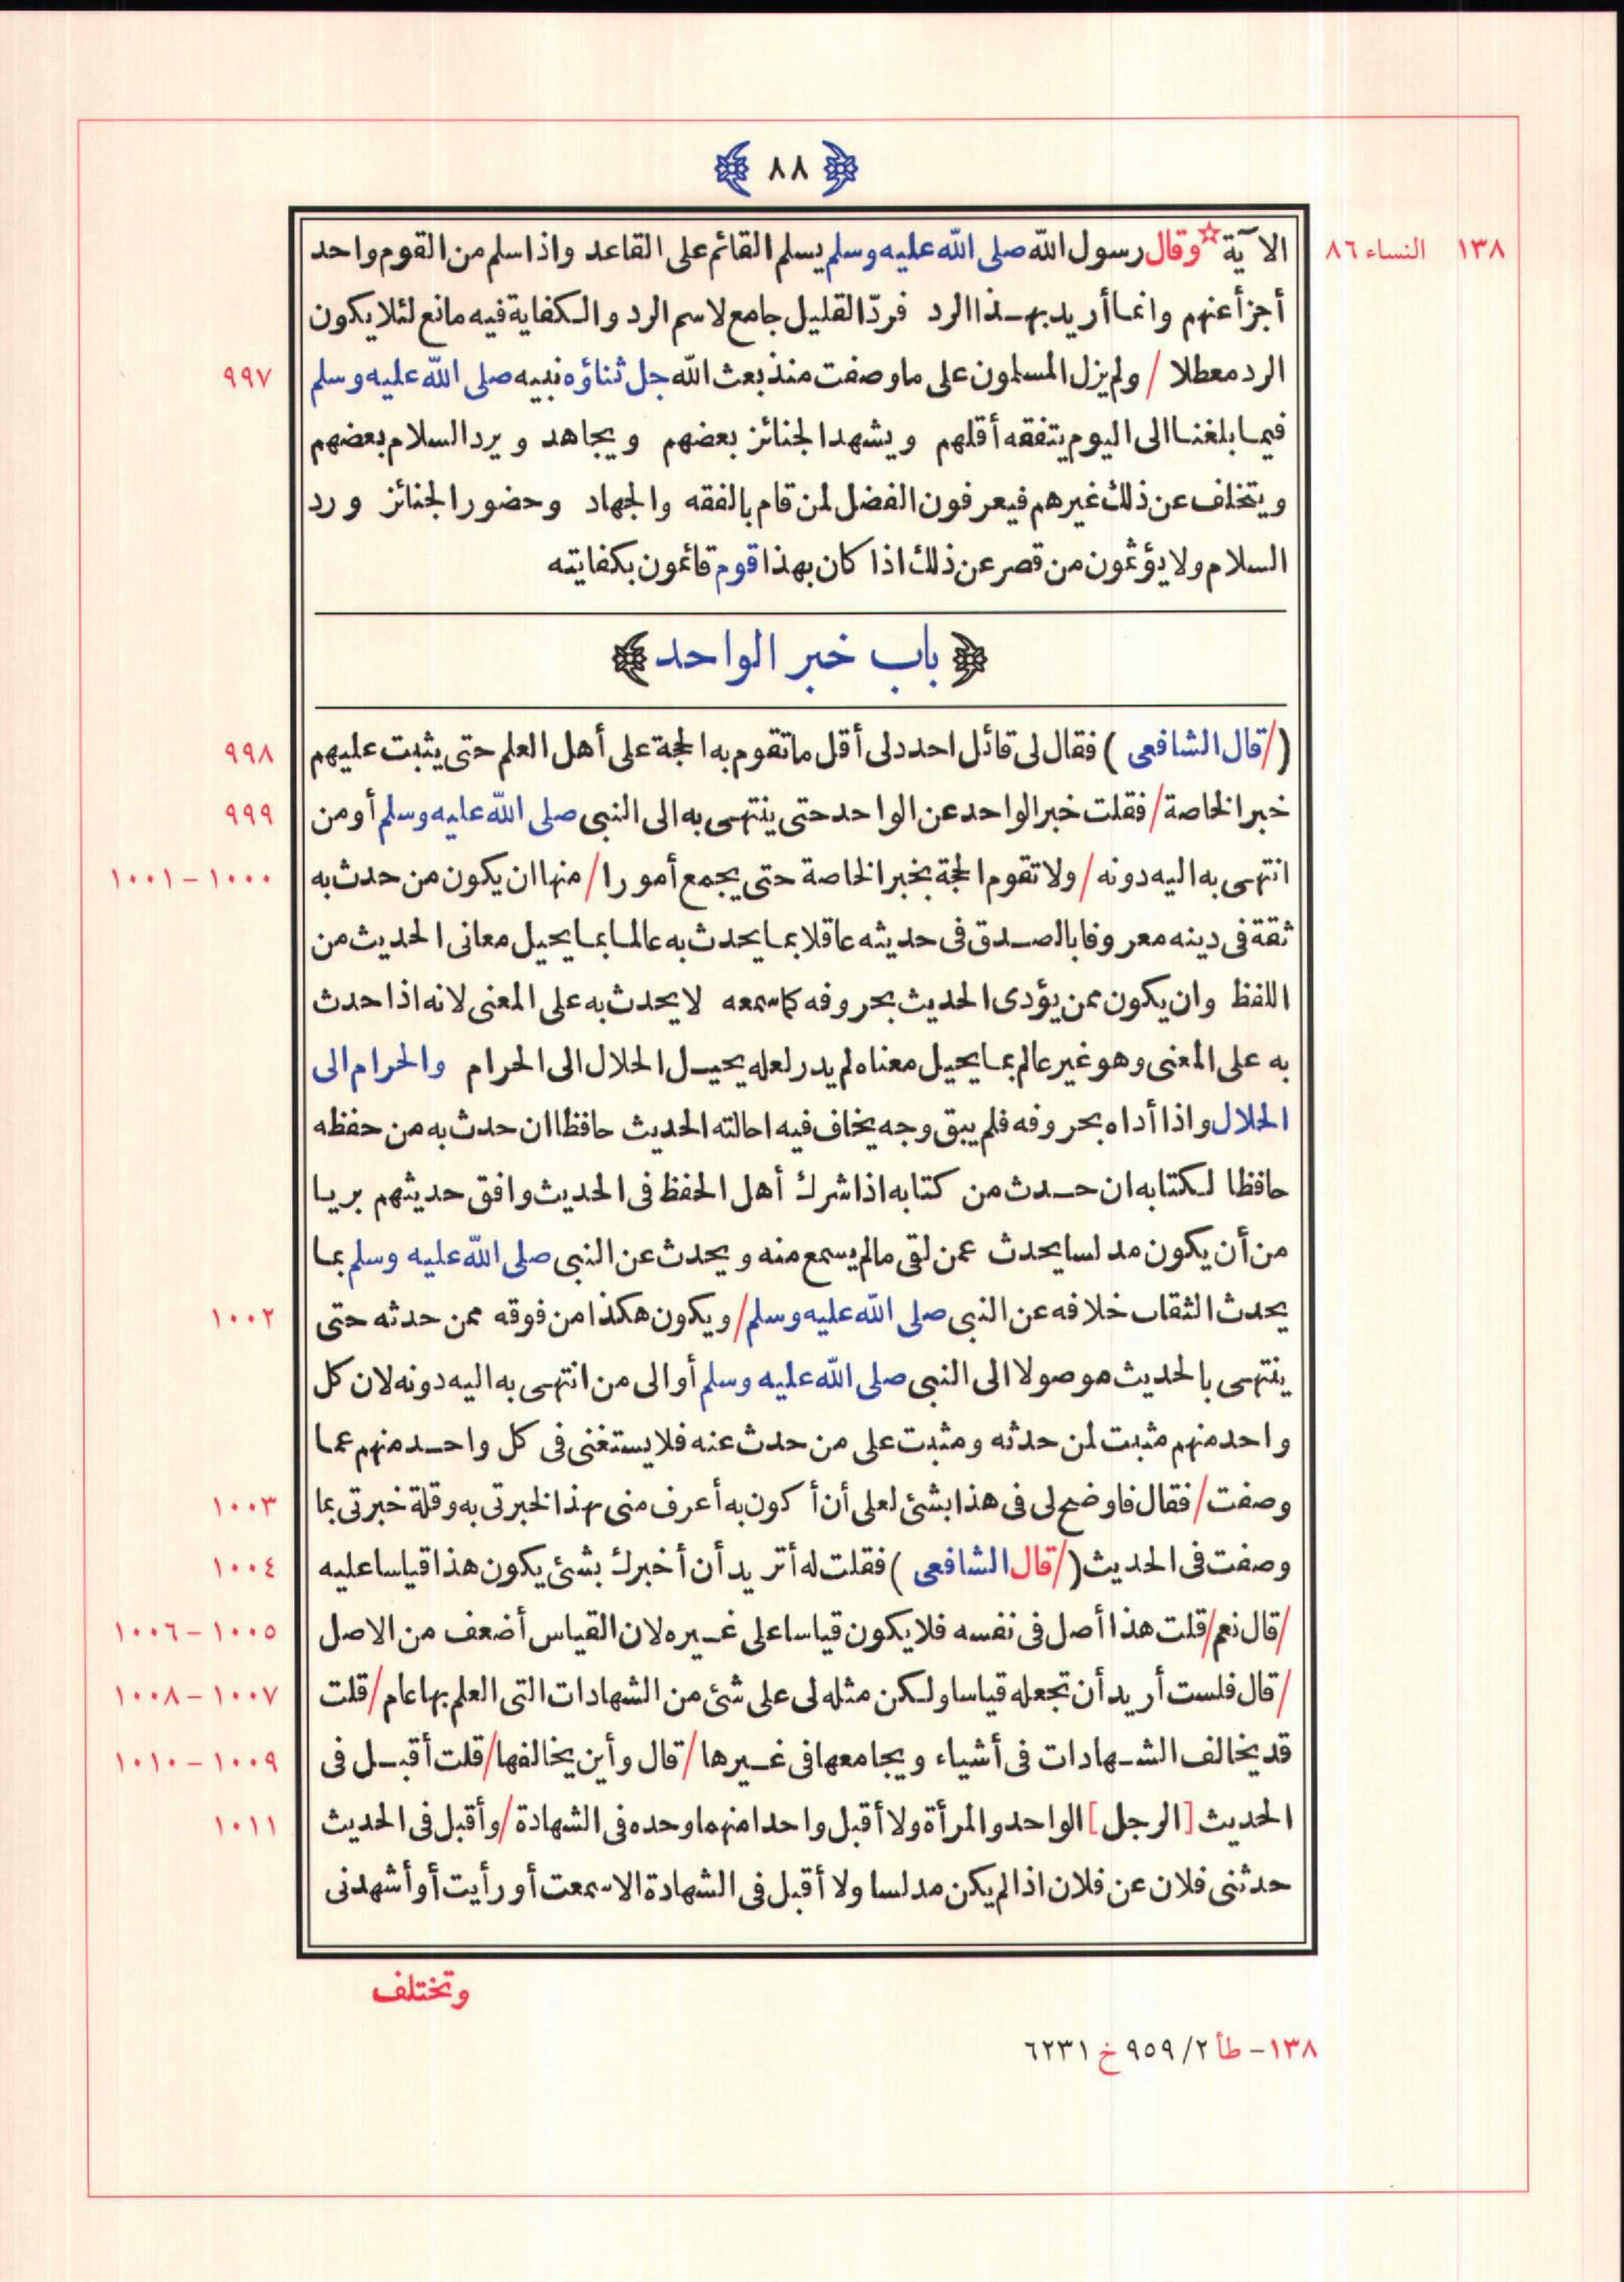 ﴿ ٨٨ ﴾
١٣٨ النساء ٨٦
الآية ☆ وقال رسول الله صلى الله عليه وسلم يسلم القائم على القاعد واذا سلم من القوم واحد
أجزأ عنهم وانما أريد بهذا الرد فردّ القليل جامع لاسم الرد والكفاية فيه مانع لئلا يكون
الرد معطلا / ولم يزل المسلمون على ما وصفت منذ بعث الله جل ثناؤه نبيه صلى الله عليه وسلم ٩٩٧
فيما بلغنا الى اليوم يتفقه أقلهم ويشهد الجنائز بعضهم ويجاهد ويرد السلام بعضهم
ويتخلف عن ذلك غيرهم فيعرفون الفضل لمن قام بالفقه والجهاد وحضور الجنائز ورد
السلام ولا يؤثمون من قصر عن ذلك اذا كان بهذا قوم قائمون بكفايته
﴿ باب خبر الواحد ﴾
(/ قال الشافعى ) فقال لى قائل احدد لى أقل ما تقوم به الحجة على أهل العلم حتى يثبت عليهم ٩٩٨
خبر الخاصة / فقلت خبر الواحد عن الواحد حتى ينتهى به الى النبى صلى الله عليه وسلم أو من ٩٩٩
انتهى به اليه دونه / ولا تقوم الحجة بخبر الخاصة حتى يجمع أمورا / منها ان يكون من حدث به ١٠٠٠ – ١٠٠١
ثقة فى دينه معروفا بالصدق فى حديثه عاقلا بما يحدث به عالما بما يحيل معانى الحديث من
اللفظ وان يكون ممن يؤدى الحديث بحروفه كما سمعه لا يحدث به على المعنى لانه اذا حدث
به على المعنى وهو غير عالم بما يحيل معناه لم يدر لعله يحيل الحلال الى الحرام والحرام الى
الحلال واذا أداه بحروفه فلم يبق وجه يخاف فيه احالته الحديث حافظا ان حدث به من حفظه
حافظا لكتابه ان حدث من كتابه اذا شرك أهل الحفظ فى الحديث وافق حديثهم بريا
من أن يكون مدلسا يحدث عمن لقى ما لم يسمع منه ويحدث عن النبى صلى الله عليه وسلم بما
يحدث الثقات خلافه عن النبى صلى الله عليه وسلم / ويكون هكذا من فوقه ممن حدثه حتى ١٠٠٢
ينتهى بالحديث موصولا الى النبى صلى الله عليه وسلم أو الى من انتهى به اليه دونه لان كل
واحد منهم مثبت لمن حدثه ومثبت على من حدث عنه فلا يستغنى فى كل واحد منهم عما
وصفت / فقال فاوضح لى فى هذا بشئ لعلى أن أكون به أعرف منى بهذا لخبرتى به وقلة خبرتى بما ١٠٠٣
وصفت فى الحديث (/ قال الشافعى ) فقلت له أتريد أن أخبرك بشئ يكون هذا قياسا عليه ١٠٠٤
/ قال نعم / قلت هذا أصل فى نفسه فلا يكون قياسا على غيره لان القياس أضعف من الاصل ١٠٠٥ – ١٠٠٦
/ قال فلست أريد أن تجعله قياسا ولكن مثله لى على شئ من الشهادات التى العلم بها عام / قلت ١٠٠٧ – ١٠٠٨
قد يخالف الشهادات فى أشياء ويجامعها فى غيرها / قال وأين يخالفها / قلت أقبل فى ١٠٠٩ – ١٠١٠
الحديث [الرجل] الواحد والمرأة ولا أقبل واحدا منهما وحده فى الشهادة / وأقبل فى الحديث ١٠١١
حدثنى فلان عن فلان اذا لم يكن مدلسا ولا أقبل فى الشهادة الا سمعت أو رأيت أو أشهدنى
وتختلف
١٣٨ – طأ ٢ / ٩٥٩ خ ٦٢٣١